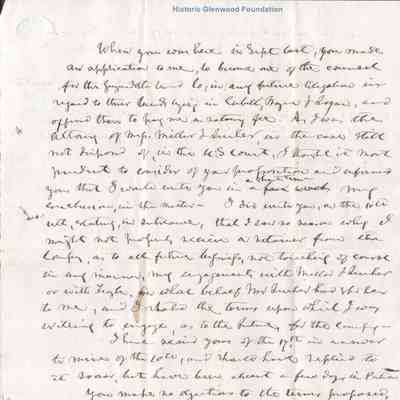 Historic Glenwood Foundation
When you were here in Sept last, you made
an application to me, to become one of the counsel
for the Guyandotte Land Co, in any future litigation in
regard to their lands lying in Cabell, Wayne & Logan, and
offered then to pay me a retaining fee. As I was the
Attorney of Mess. Miller & Suiter, in the case still
not disposed of, in the US Court, I thought it most
prudent to consider of your proposition and informed
you that I would write you in a few weeks my
a short time
conclusion, in the matter - I did write you, on the
ult, stating, in substance, that I saw no reason why I
might not properly receive a retainer from the
Company, as to all future business, not touching of course
in any manner, my engagements with Miller & Suiter
or with in what behalf Mr Suiter had
to me, and stated the terms upon which I was
willing to engage, as to the future, for the company -
I have recd yours of the 17th in answer
to mine of the and should have replied to
it sooner, but have been absent a few days in
You make no objections to the terms proposed,